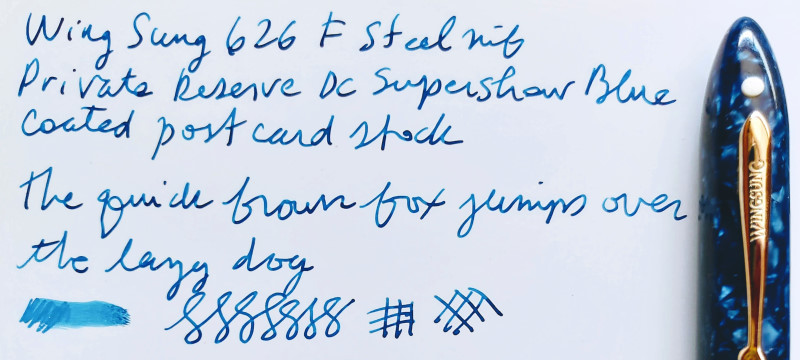 Wing Sung 626 F Steel nib
Private Reserve DC Supershow Blue
Coated post card stock
the quick brown fox jumps over
the lazy dog
WINGSUNG